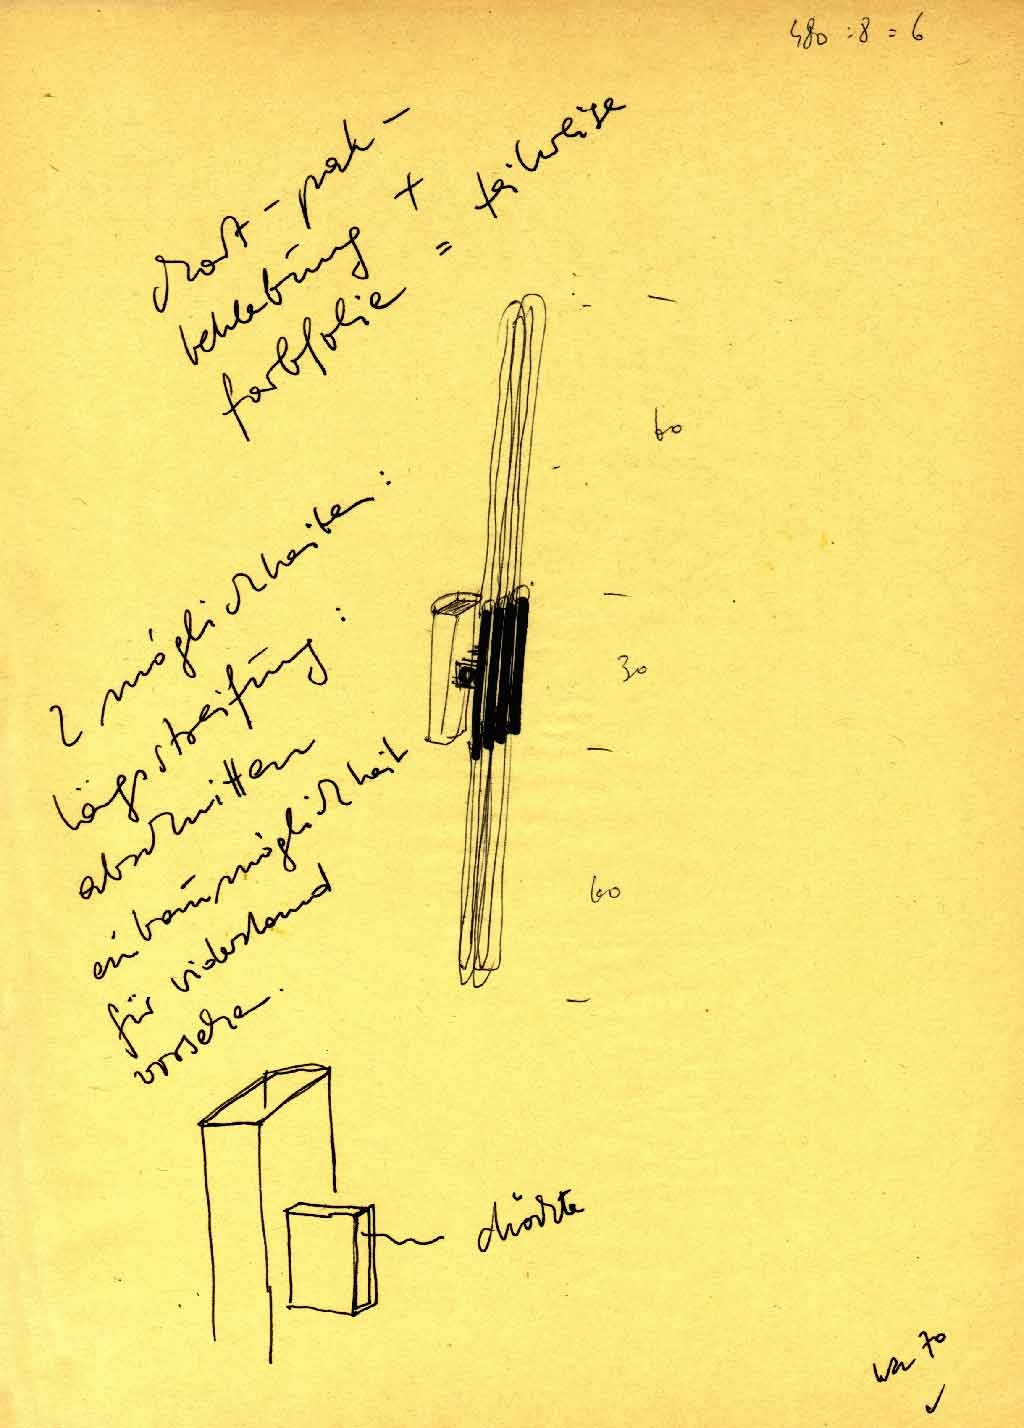 480 : 8 = 6
beklebung +
farbfolie = teilweise
2 möglichkeiten :
längsstreifung :
abschnitten
einbaumöglichkeit
für widerstand
vorsehen.
60
30
60
drähte
70